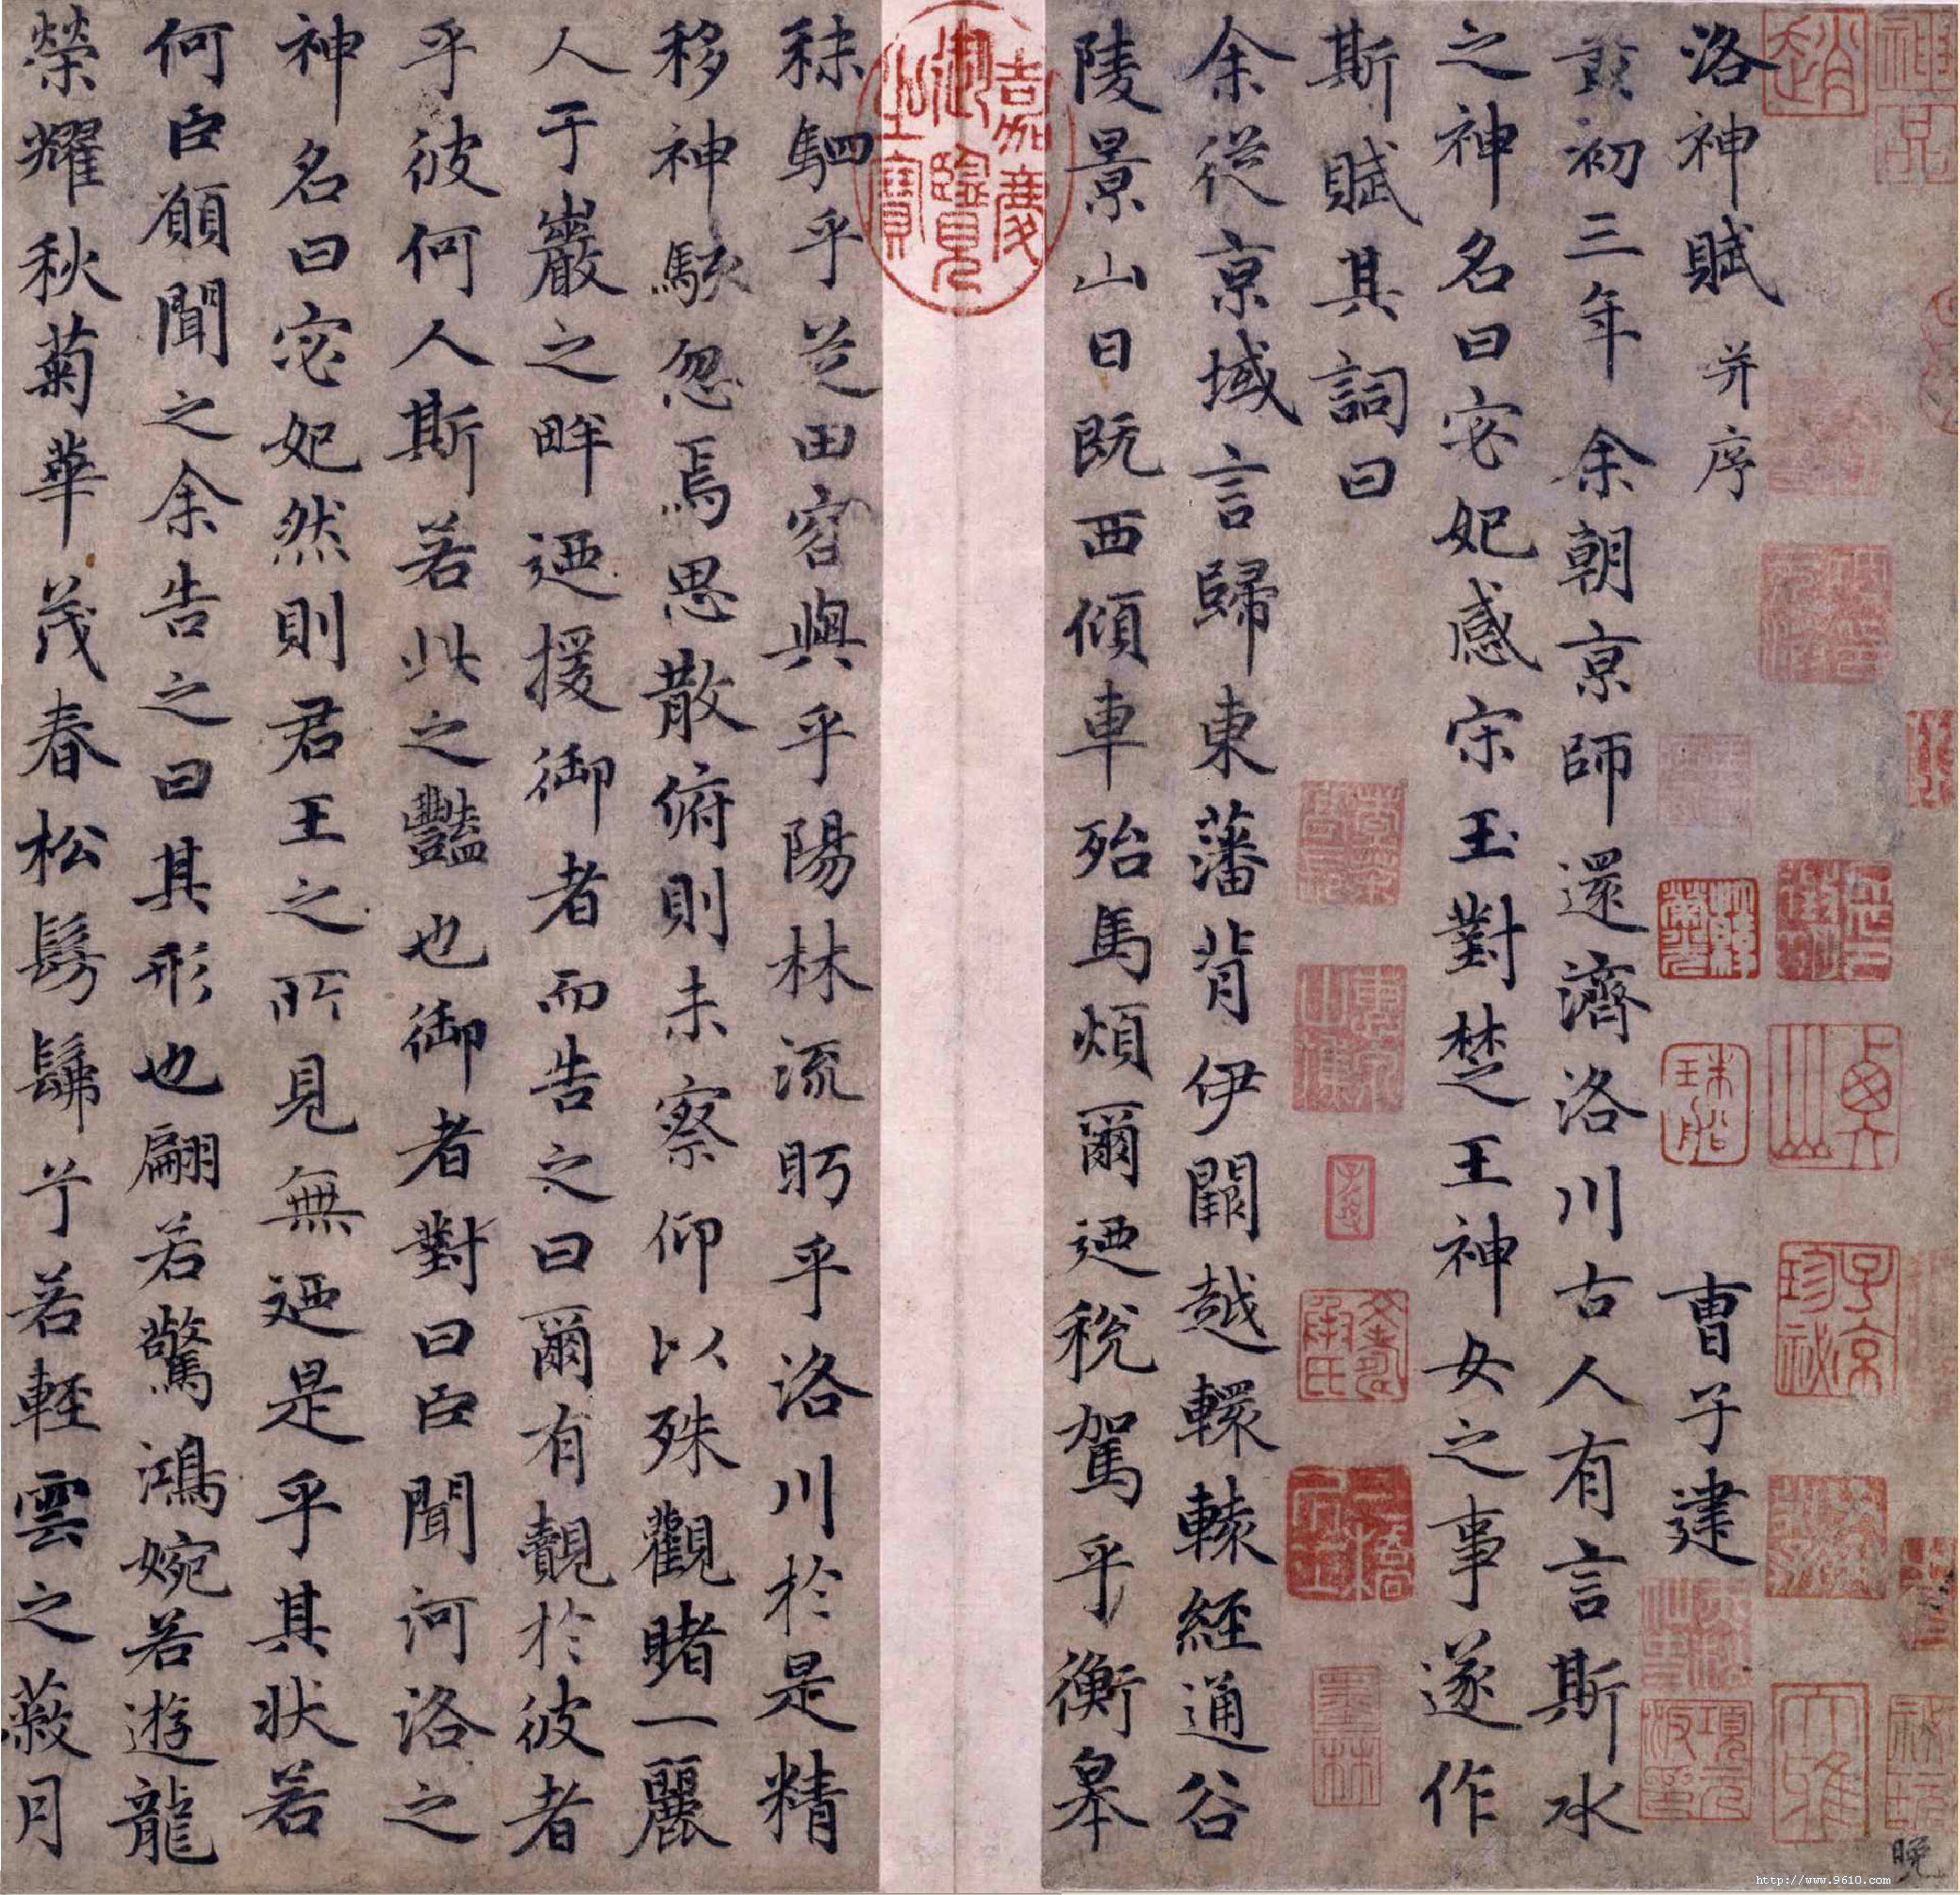 洛神賦 并序 曹子建
黃初三年余朝京師還濟洛川古人有言斯水
之神名曰宓妃感宋玉對楚王神女之事遂作
斯賦其詞曰
余從京域言歸東藩背伊闕越轘轅經通谷
陵景山日既西傾車殆馬煩爾迺稅駕乎衡皋
秣駟乎芝田容與乎陽林流眄乎洛川於是精
移神駭忽焉思散俯則未察仰以殊觀睹一麗
人于巖之畔迺援御者而告之曰爾有覿於彼者
乎彼何人斯若此之豔也御者對曰臣聞河洛之
神名曰宓妃然則君王之所見無迺是乎其狀若
何臣願聞之余告之曰其形也翩若驚鴻婉若遊龍
榮耀秋菊華茂春松髣髴兮若輕雲之蔽月
嘉慶御覽之寶
子京珍祕
項元汴印
墨林
大雅
晚
http://www.9610.com